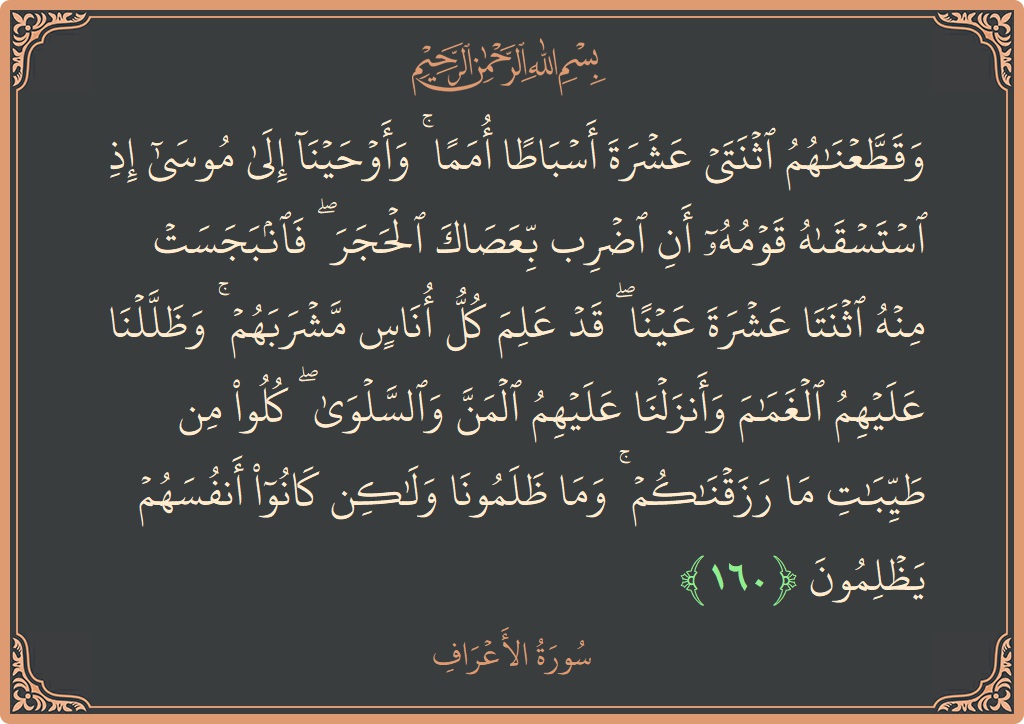 بِسْمِ اللَّهِ الرَّحْمَٰنِ الرَّحِيمِ
وَقَطَّعْنَـٰهُمُ ٱثْنَتَىْ عَشْرَةَ أَسْبَاطًا أُمَمًا ۚ وَأَوْحَيْنَآ إِلَىٰ مُوسَىٰٓ إِذِ
ٱسْتَسْقَىٰهُ قَوْمُهُۥٓ أَنِ ٱضْرِب بِّعَصَاكَ ٱلْحَجَرَ ۖ فَٱنۢبَجَسَتْ
مِنْهُ ٱثْنَتَا عَشْرَةَ عَيْنًا ۖ قَدْ عَلِمَ كُلُّ أُنَاسٍ مَّشْرَبَهُمْ ۚ وَظَلَّلْنَا
عَلَيْهِمُ ٱلْغَمَـٰمَ وَأَنزَلْنَا عَلَيْهِمُ ٱلْمَنَّ وَٱلسَّلْوَىٰ ۖ كُلُوا۟ مِن
طَيِّبَـٰتِ مَا رَزَقْنَـٰكُمْ ۚ وَمَا ظَلَمُونَا وَلَـٰكِن كَانُوٓا۟ أَنفُسَهُمْ
يَظْلِمُونَ ﴿١٦٠﴾
سُورَةُ الأَعْرَافِ